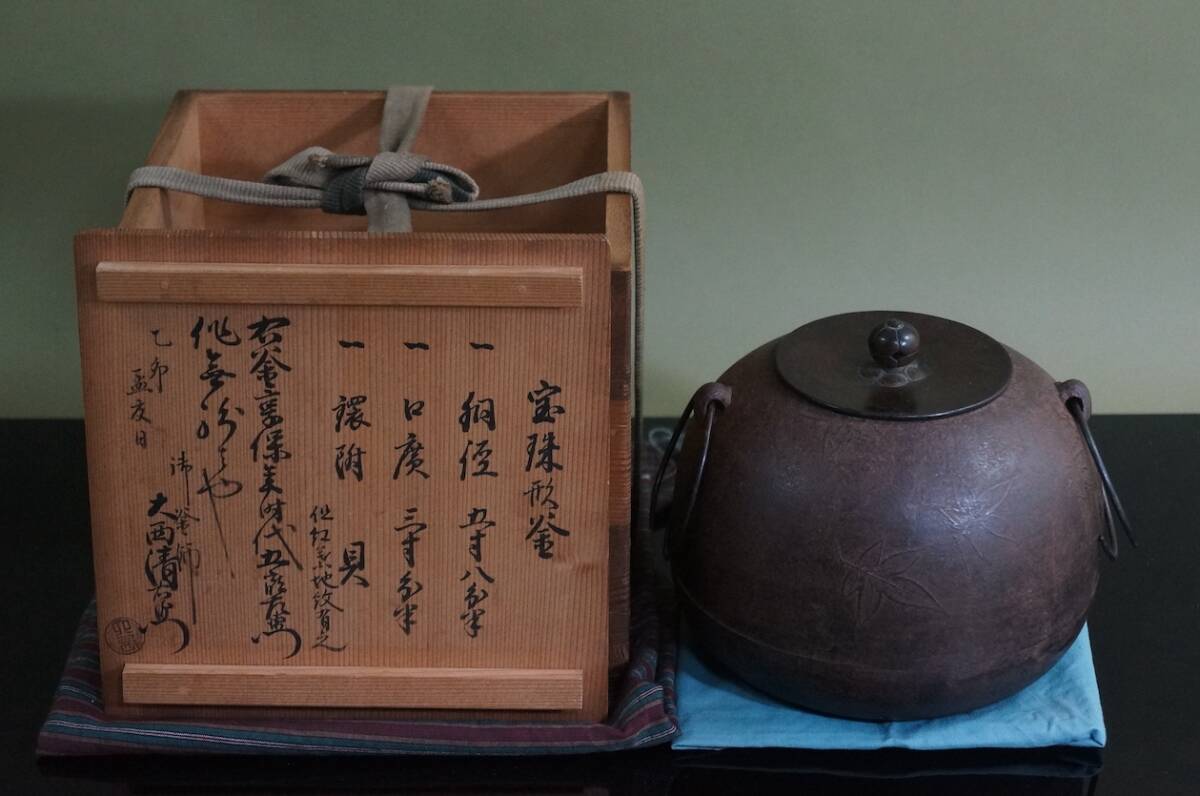 宝珠形釜
一 胴径 五寸八分半
一 口廣 三寸分半
一 環附 貝
但紅葉地紋有之
右釜享保美時代五郎左衛門
作無紛者也
乙卯
孟夏日
御釜師
大西清右衛門